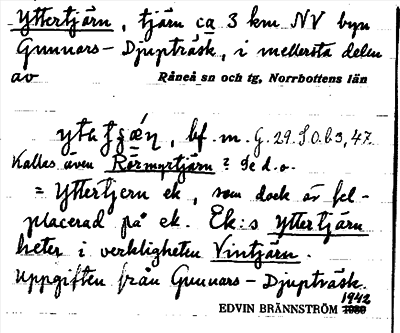 Yttertjärn, tjärn ca 3 km NV byn
Gunnars-Djupträsk, i mellersta delen
av Råneå sn och tg, Norrbottens län
bf. m. G. 29. S. O. b3, 47.
Kallas även Rörmyrtjärn? Se d.o.
= Yttertjern ek, som dock är fel-
placerad på ek. Ek:s Yttertjärn
heter i verkligheten Vintjärn.
Uppgiften från Gunnars-Djupträsk.
1942
EDVIN BRÄNNSTRÖM 1930